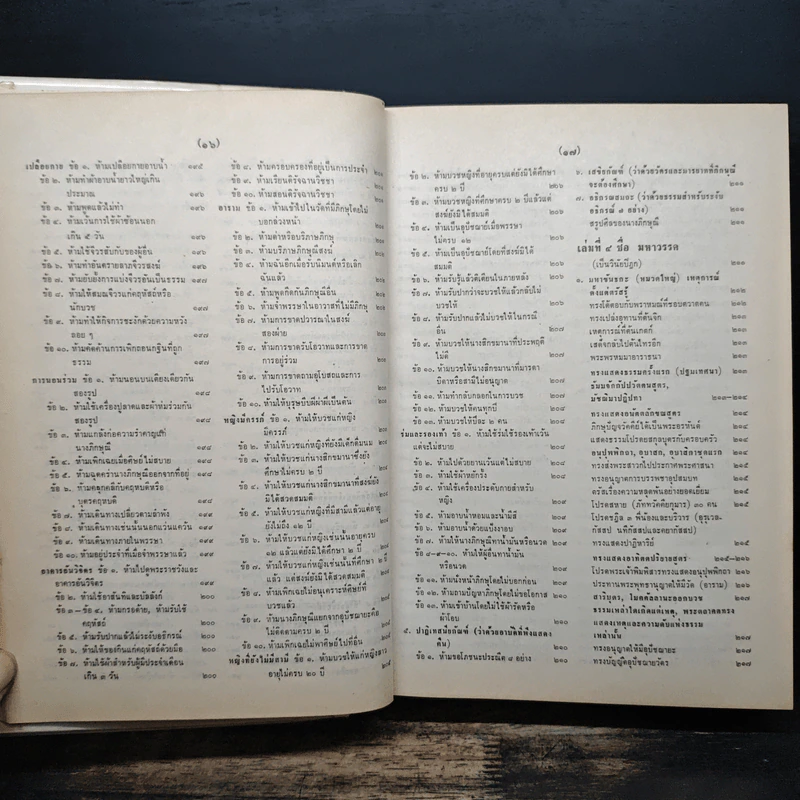 (๑๖)
เปลือยกาย ข้อ ๑. ห้ามเปลือยกายอาบน้ำ ๑๙๕
ข้อ ๒. ห้ามทำผ้าอาบน้ำยาวใหญ่เกิน
ประมาณ ๑๙๖
ข้อ ๓. ห้ามพูดแล้วไม่ทำ ๑๙๖
ข้อ ๔. ห้ามเว้นการใช้ผ้าซ้อนนอก
เกิน ๕ วัน ๑๙๖
ข้อ ๕. ห้ามใช้จีวรสับกับของผู้อื่น ๑๙๖
ข้อ ๖. ห้ามทำอันตรายลาภจีวรสงฆ์ ๑๙๖
ข้อ ๗. ห้ามยับยั้งการแบ่งจีวรอันเป็นธรรม ๑๙๗
ข้อ ๘. ห้ามให้สมณจีวรแก่คฤหัสถ์หรือ
นักบวช ๑๙๗
ข้อ ๙. ห้ามทำให้กิจการชะงักด้วยความหวัง
ลอย ๆ ๑๙๗
ข้อ ๑๐. ห้ามคัดค้านการเพิกถอนกฐินที่ถูก
ธรรม ๑๙๗
การนอนร่วม ข้อ ๑. ห้ามนอนบนเตียงเดียวกัน
สองรูป ๑๙๘
ข้อ ๒. ห้ามใช้เครื่องปูลาดและผ้าห่มร่วมกัน
สองรูป ๑๙๘
ข้อ ๓. ห้ามแกล้งก่อความรำคาญแก่
นางภิกษุณี ๑๙๘
ข้อ ๔. ห้ามเพิกเฉยเมื่อศิษย์ไม่สบาย ๑๙๘
ข้อ ๕. ห้ามฉุดคร่านางภิกษุณีออกจากที่อยู่ ๑๙๘
ข้อ ๖. ห้ามคลุกคลีกับคฤหบดีหรือ
บุตรคฤหบดี ๑๙๘
ข้อ ๗. ห้ามเดินทางเปลี่ยวตามลำพัง
ข้อ ๘. ห้ามเดินทางเช่นนั้นนอกแว่นแคว้น
ข้อ ๙. ห้ามเดินทางภายในพรรษา
ข้อ ๑๐. ห้ามอยู่ประจำที่เมื่อจำพรรษาแล้ว
อาคารอันวิจิตร ข้อ ๑. ห้ามไปดูพระราชวังและ
อาคารอันวิจิตร ๑๙๙
ข้อ ๒. ห้ามใช้อาสันทิและบัลลังก์ ๒๐๐
ข้อ ๓-ข้อ ๔. ห้ามกรอด้าย, ห้ามรับใช้
คฤหัสถ์ ๒๐๐
ข้อ ๕. ห้ามรับปากแล้วไม่ระงับอธิกรณ์ ๒๐๐
ข้อ ๖. ห้ามให้ของกินแก่คฤหัสถ์ด้วยมือ ๒๐๐
ข้อ ๗. ห้ามใช้ผ้าสำหรับผู้มีประจำเดือน
เกิน ๓ วัน ๒๐๐
ข้อ ๘. ห้ามครอบครองที่อยู่เป็นการประจำ
ข้อ ๙. ห้ามเรียนดิรัจฉานวิชชา
ข้อ ๑๐. ห้ามสอนดิรัจฉานวิชชา
อาราม ข้อ ๑. ห้ามเข้าไปในวัดที่มีภิกษุโดยไม่
บอกล่วงหน้า
ข้อ ๒. ห้ามด่าหรือบริภาษภิกษุ
ข้อ ๓. ห้ามบริภาษภิกษุณีสงฆ์
ข้อ ๔. ห้ามฉันอีกเมื่อรับนิมนต์หรือเลิก
ฉันแล้ว
ข้อ ๕. ห้ามพูดกีดกันภิกษุณีอื่น
ข้อ ๖. ห้ามจำพรรษาในอาวาสที่ไม่มีภิกษุ
ข้อ ๗. ห้ามการขาดปวารณาในสงฆ์
สองฝ่าย
ข้อ ๘. ห้ามการขาดรับโอวาทและการขาด
การอยู่ร่วม
ข้อ ๙. ห้ามการขาดถามอุโบสถและการ
ไปรับโอวาท
ข้อ ๑๐. ห้ามให้บุรุษบีบฝีผ่าฝีเป็นต้น
หญิงมีครรภ์ ข้อ ๑. ห้ามให้บวชแก่หญิง
มีครรภ์
ข้อ ๒. ห้ามให้บวชแก่หญิงที่ยังมีเด็กดื่มนม
ข้อ ๓. ห้ามให้บวชแก่นางสิกขมานาซึ่งยัง
ศึกษาไม่ครบ ๒ ปี
ข้อ ๔. ห้ามให้บวชแก่นางสิกขมานาที่สงฆ์ยัง
มิได้สวดสมมติ
ข้อ ๕. ห้ามให้บวชแก่หญิงที่มีสามีแล้วแต่อายุ
ยังไม่ถึง ๑๒ ปี
ข้อ ๖. ห้ามให้บวชแก่หญิงเช่นนั้นอายุครบ
๑๒ แล้วแต่ยังมิได้ศึกษา ๒ ปี
ข้อ ๗. ห้ามให้บวชแก่หญิงเช่นนั้นที่ศึกษา ๒ ปี
แล้ว แต่สงฆ์ยังมิได้สวดสมมติ
ข้อ ๘. ห้ามเพิกเฉยไม่อนุเคราะห์ศิษย์ที่
บวชแล้ว
ข้อ ๙. ห้ามนางภิกษุณีแยกออกจากอุปัชฌายะคือ
ไม่ติดตามครบ ๒ ปี
ข้อ ๑๐. ห้ามเพิกเฉยไม่พาศิษย์ไปที่อื่น
หญิงที่ยังไม่มีสามี ข้อ ๑. ห้ามบวชให้แก่หญิงสาว
อายุไม่ครบ ๒๐ ปี
(๑๗)
ข้อ ๒. ห้ามบวชหญิงที่อายุครบแต่ยังมิได้ศึกษา
ครบ ๒ ปี ๒๐๖
ข้อ ๓. ห้ามบวชหญิงที่ศึกษาครบ ๒ ปีแล้วแต่
สงฆ์ยังมิได้สมมติ ๒๐๖
ข้อ ๔. ห้ามเป็นอุปัชฌาย์เมื่อพรรษา
ไม่ครบ ๑๒ ๒๐๖
ข้อ ๕. ห้ามเป็นอุปัชฌาย์โดยที่สงฆ์มิได้
สมมติ ๒๐๖
ข้อ ๖. ห้ามรับรู้แล้วติเตียนในภายหลัง
ข้อ ๗. ห้ามรับปากว่าจะบวชให้แล้วกลับไม่
บวชให้ ๒๐๗
ข้อ ๘. ห้ามรับปากแล้วไม่บวชให้ในกรณี
อื่น ๒๐๗
ข้อ ๙. ห้ามบวชให้นางสิกขมานาที่ประพฤติ
ไม่ดี ๒๐๗
ข้อ ๑๐. ห้ามบวชให้นางสิกขมานาที่มารดา
บิดาหรือสามีไม่อนุญาต ๒๐๗
ข้อ ๑๑. ห้ามทำกลับกลอกในการบวช ๒๐๘
ข้อ ๑๒. ห้ามบวชให้คนทุกปี ๒๐๘
ข้อ ๑๓. ห้ามบวชให้ปีละ ๒ คน ๒๐๘
ร่มและรองเท้า ข้อ ๑. ห้ามใช้ร่มใช้รองเท้าเว้น
แต่จะไม่สบาย ๒๐๘
ข้อ ๒. ห้ามไปด้วยยานเว้นแต่ไม่สบาย ๒๐๘
ข้อ ๓. ห้ามใช้ผ้าหยักรั้ง ๒๐๘
ข้อ ๔. ห้ามใช้เครื่องประดับกายสำหรับ
หญิง ๒๐๙
ข้อ ๕. ห้ามอาบน้ำหอมและน้ำมีสี ๒๐๙
ข้อ ๖. ห้ามอาบน้ำด้วยแป้งงาอบ ๒๐๙
ข้อ ๗. ห้ามให้นางภิกษุณีทาน้ำมันหรือนวด ๒๐๙
ข้อ ๘-๙-๑๐. ห้ามให้ผู้อื่นทาน้ำมัน
หรือนวด ๒๐๙
ข้อ ๑๑. ห้ามนั่งหน้าภิกษุโดยไม่บอกก่อน ๒๑๐
ข้อ ๑๒. ห้ามถามปัญหาภิกษุโดยไม่ขอโอกาส ๒๑๐
ข้อ ๑๓. ห้ามเข้าบ้านโดยไม่ใช้ผ้ารัดหรือ
ผ้าโอบ ๒๑๐
๕. ปาฏิเทสนียกัณฑ์ (ว่าด้วยอาบัติที่พึงแสดง
คืน) ๒๑๐
ข้อ ๑. ห้ามขอโภชนะประณีต ๘ อย่าง ๒๑๐
๖. เสขิยกัณฑ์ (ว่าด้วยวัตรและมารยาทที่ภิกษุณี
จะต้องศึกษา) ๒๑๑
๗. อธิกรณสมถะ (ว่าด้วยธรรมสำหรับระงับ
อธิกรณ์ ๗ อย่าง) ๒๑๑
สรุปศีลของนางภิกษุณี
เล่มที่ ๔ ชื่อ มหาวรรค
(เป็นวินัยปิฎก) ๒๑๑
๑. มหาขันธกะ (หมวดใหญ่) เหตุการณ์
ตั้งแต่ตรัสรู้
ทรงโต้ตอบกับพราหมณ์ที่ชอบตวาดคน
ทรงเปล่งอุทานที่ต้นจิก
เหตุการณ์ที่ต้นเกตก์
เสด็จกลับไปต้นไทรอีก
พระพรหมมาอาราธนา
ทรงแสดงธรรมครั้งแรก (ปฐมเทศนา)
ธัมมจักกัปปวัตตนสูตร,
มัชฌิมาปฏิปทา ๒๑๓-๒๑๔
ทรงแสดงอนัตตลักขณสูตร ๒๑๔
ภิกษุปัญจวัคคีย์ได้เป็นพระอรหันต์ ๒๑๔
แสดงธรรมโปรดยสกุลบุตรกับครอบครัว ๒๑๔
อนุปุพพิกถา, อุบาสก, อุบาสิกาชุดแรก ๒๑๔
ทรงส่งพระสาวกไปประกาศพระศาสนา ๒๑๕
ทรงอนุญาตการบรรพชาอุปสมบท ๒๑๕
ตรัสเรื่องความหลุดพ้นอย่างยอดเยี่ยม ๒๑๕
โปรดสหาย (ภัททวัคคิยกุมาร) ๓๐ คน ๒๑๕
โปรดชฎิล ๓ พี่น้องและบริวาร (อุรุเวล-
กัสสป นทีกัสสปและคยากัสสป) ๒๑๕
ทรงแสดงปาฏิหาริย์ ๒๑๕
ทรงแสดงอาทิตตปริยายสูตร ๒๑๕-๒๑๖
โปรดพระเจ้าพิมพิสารทรงแสดงอนุปุพพิกถา ๒๑๖
ประทานพระพุทธานุญาตให้มีวัด (อาราม) ๒๑๖
สาริบุตร, โมคคัลลานะออกบวช ๒๑๖
ธรรมเหล่าใดเกิดแต่เหตุ, พระตถาคตทรง
แสดงเหตุและความดับแห่งธรรม
เหล่านั้น ๒๑๗
ทรงอนุญาตให้มีอุปัชฌายะ ๒๑๗
ทรงบัญญัติอุปัชฌายวัตร ๒๑๗